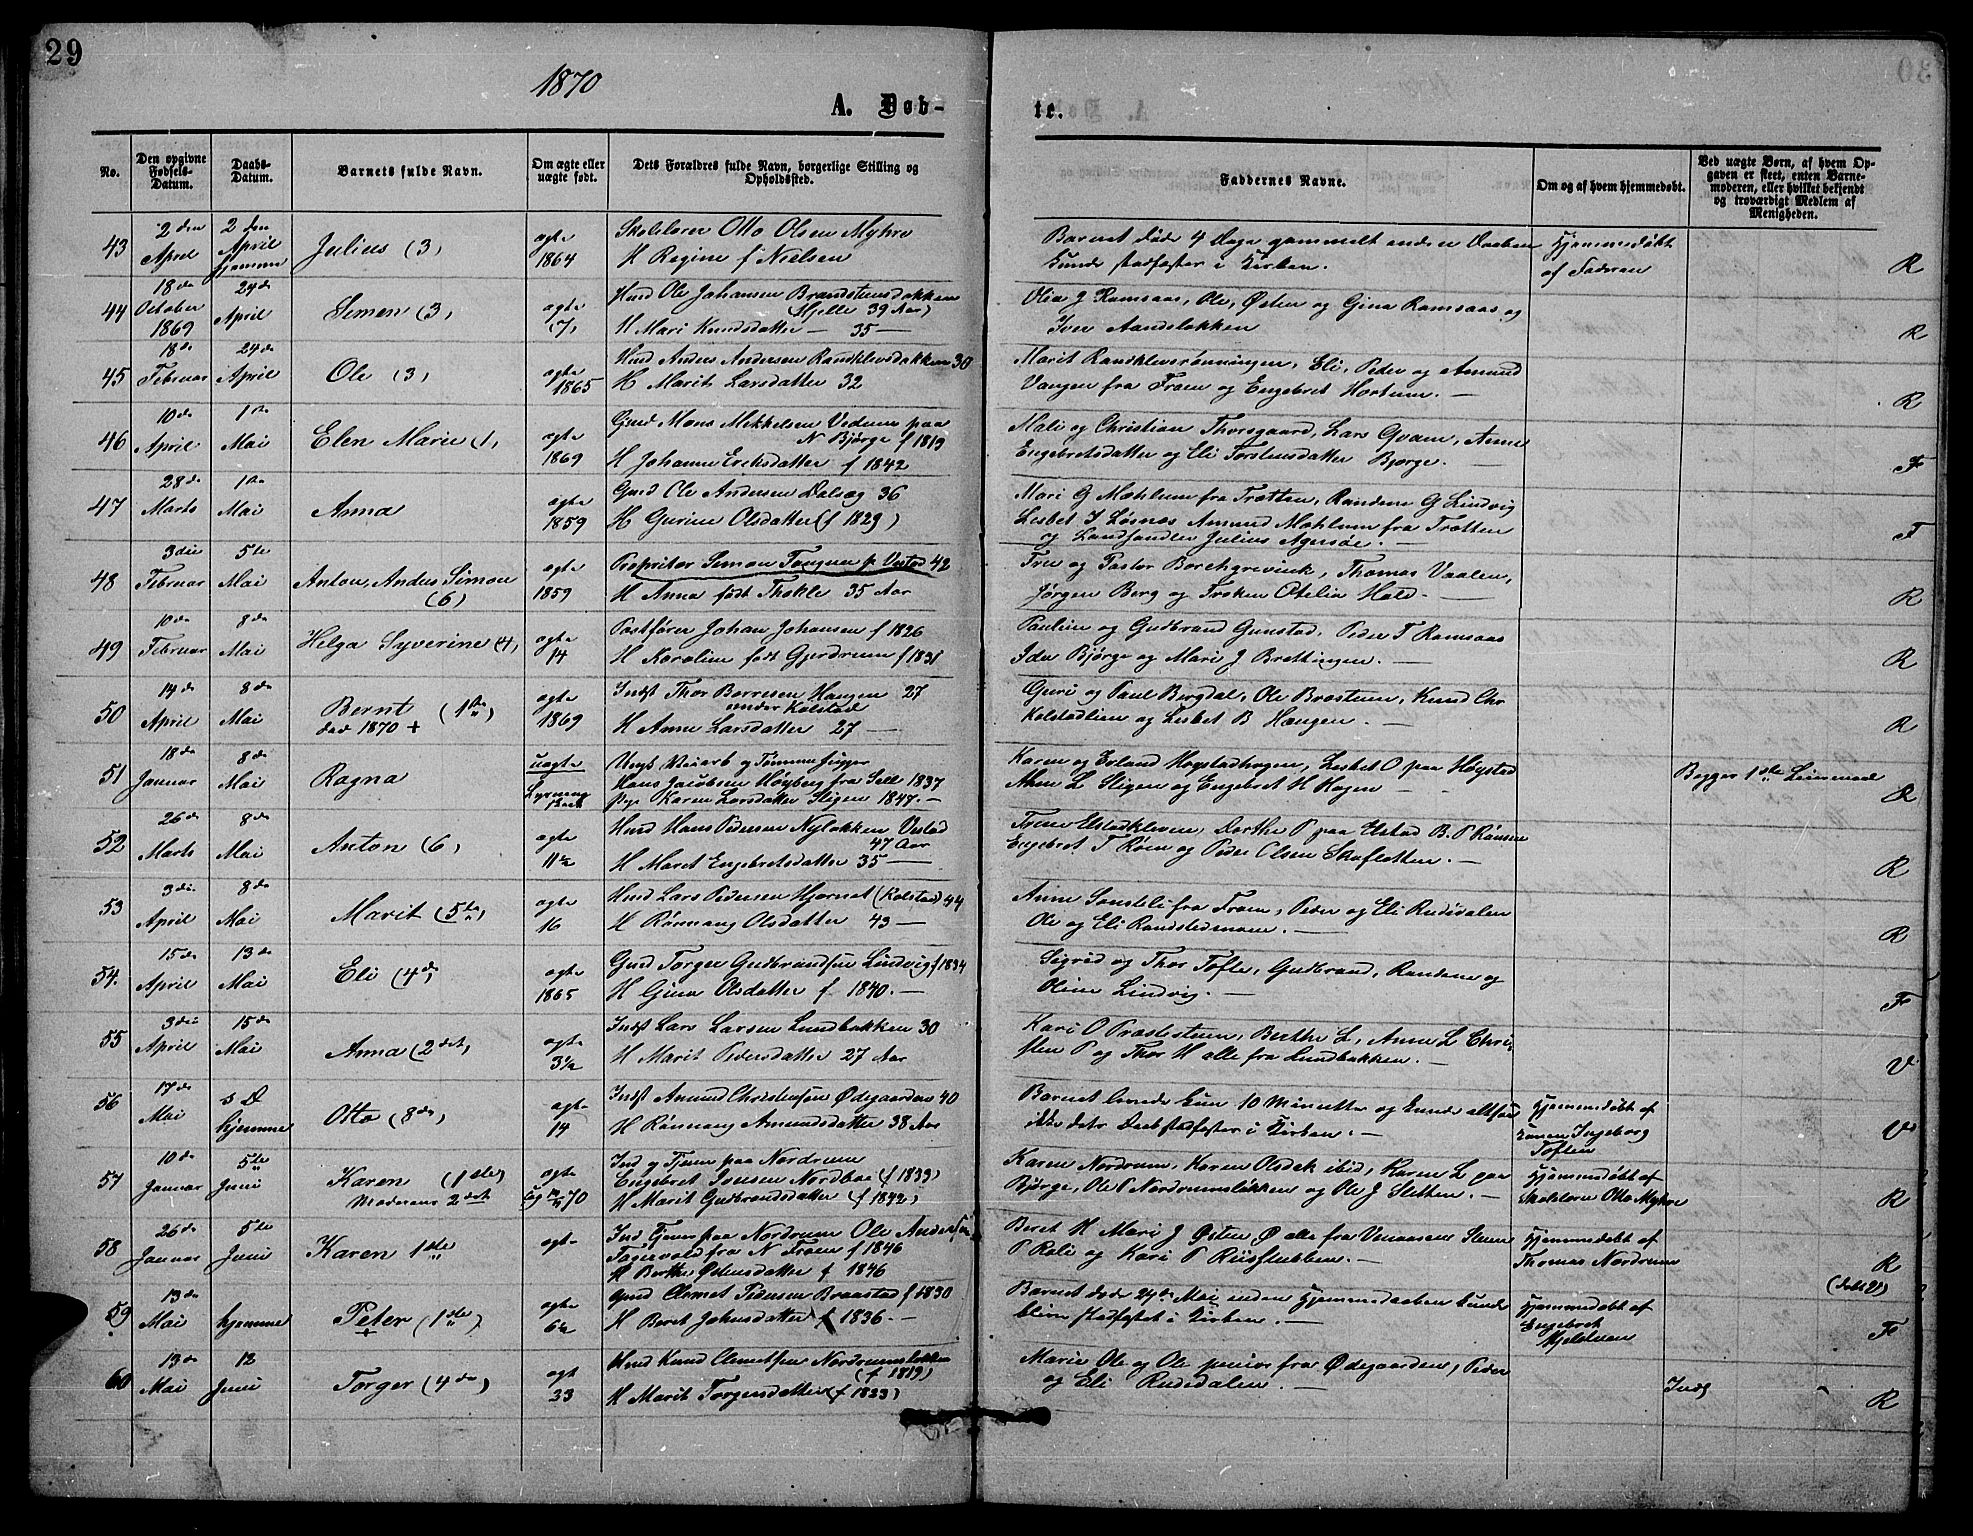 29
30
1870
A. Døb-
te.
No.
Den opgivne Fødsels-Datum.
Daabs-Datum.
Barnets fulde Navn.
Om ægte eller uægte født.
Dets Forældres fulde Navn, borgerlige Stilling og Opholdssted.
Faddernes Navne.
Om og af hvem hjemmedøbt.
Ved uægte Børn, af hvem Opgaven er skeet, enten Barnemoderen, eller hvilket bekjendt og troværdigt Medlem af Menigheden.
43
2 den April
2 den April hjemme
Julius (3)
ægte 1864
Skolelærer Otto Olsen Myhre
H Regine f Nielsen
Barnet døde 4 Dage gammelt enden Daaben
kunde stadfæstes i Kirken.
Hjemmedøbt
af Faderen
R
44
18de October 1869
24de April
Simon (3)
ægte (7)
Husd Ole Johansen Brandstensbakken
Mjelle 39 Aar)
H Mari Knudsdatter — 35 —
Olia J Ramsaas, Ole, Østen og Gina Ramsaas og
Iver Aandsløkken
R
45
18de Februar
24de April
Ole (3)
ægte 1865
Husd Anders Andersen Randklevsbakken 30
H Marit Larsdatter 32
Marit Randklevsrønningen, Eli, Peder og Amund
Vangen fra Froen og Engebret Hortum. —
R
46
10de April
1ste Mai
Elen Marie (1)
ægte 1869
Gmd Mons Mikkelsen Vedum paa
N Bjørge f 1819
H Johanne Eriksdatter f 1842
Mali og Christian Thorsgaard, Lars Qvam, Anne
Engebretsdatter og Eli Torstensdatter Bjørge. —
F
47
28de Marts
1ste Mai
Anna
ægte 1859
Gmd Ole Andersen Dalseg 36
H Gurine Olsdatter (f 1829)
Mari G Mæhlum fra Trætten, Randine G Lindvig
Lisbet J Løsnæs Amund Mæhlum fra Trætten
og Landhandler Julius Agersøe. —
F
48
3die Februar
5te Mai
Anton Anders Simon
(6)
ægte 1859
Proprietær Simon Tougnen p. Vestad 42
H Anna født Thokle 35 Aar
Fru og Pastor Borchgrevink, Thomas Vaalen,
Jørgen Berg og Frøken Otelia Hald. —
R
49
10de Februar
8de Mai
Helga Syverine (4)
ægte 14
Postfører Johan Johansen f 1826
H Karoline født Gjerdrum f 1831
Pauline og Gudbrand Gunstad, Peder T Ramsaas
Ida Bjørge og Mari J Brettingen. —
R
50
14de April
8de Mai
Bernt (1ste)
død 1870 +
ægte 1869
Indst Thor Børresen Haugen 27
under Kolstad
H Anne Larsdatter 27 —
Guri og Paul Bergdal, Ole Bræstuen, Knud Chr
Kolstadlien og Lisbet B Haugen. —
R
51
18de Januar
8de Mai
Ragna
uægte
Ungk Veiarb og Tømmerhugger
Hans Jacobsen Høyberg fra Sell 1837
pige Karen Larsdatter Stigen 1847. —
Karen og Erland Høystadhagen, Lisbet O paa Høystad
Athon L Stigen og Engebret H Hagen —
Begges 1ste Leiermaal
R
52
26de Marts
8de Mai
Anton (6)
ægte 11½
Husd Hans Pedersen Nyløkken Vestad
47 Aar
H Maret Engebretsdatter 35 —
Trine Elstadkleven, Dorthe P paa Elstad B. P Rønsen
Engebret T Roen og Peder Olsen Skafletten. —
R
53
3die April
8de Mai
Marit (5te)
ægte 16
Husd Lars Pedersen Hjørnet (Kolstad) 44
H Rønnaug Olsdatter 43 —
Anne Sonsteli fra Froen, Peder og Eli Rudidalen
Ole og Eli Randstedmoen. —
R
54.
15de April
13de Mai
Eli (4de)
ægte 1865
Gmd Torger Gudbrandsen Lindvig f 1834
H Gina Olsdatter f 1840. —
Sigrid og Thor Tofte, Gudbrand, Randine og
Oline Lindvig. —
F
55
3die April
15de Mai
Anna (2det)
ægte 3½
Indst Lars Larsen Lundbakken 30
H Marit Pedersdatter 27 Aar
Kari O Præstestuen, Berthe L, Anne L Chri
sten P og Thor H alle fra Lundbakken. —
V
56
17de Mai
s D hjemme
Otto (8de)
ægte 14
Indst Amund Christensen Ødegaarden 40
H Rønnaug Amundsdatter 38 Aar
Barnet levede kun 10 Minutter og kunde altsaa
ikke dets Daab stadfæstes i Kirken. —
Hjemmedøbt af
Konen Ingeborg
Toften
V
57
10de Januar
5te Juni
Karen (1ste)
Moderens 2det
ægte
70
Ind og Tjen paa Nordrum
Engebret Simsen Nordboe (f 1839)
H Marit Gudbrandsdatter (f 1842)
Karen Nordrum, Karen Olsdat ibid, Karen L paa
Bjørge, Ole P Nordrumsløkken og Ole J Sletten. —
Hjemmedøbt af
Skolelærer Otto Myhre
R
58
26de Januar
5te Juni
Karen 1ste
ægte
Ind Tjener paa Nordrum Ole Andersen
Fagervold fra N Froen f 1846
H Berthe Østensdatter f 1846
Beret H Mari J Østen Ø alle fra Venaasen Steen
P Roli og Kari P Riisstubben. —
Hjemmedøbt af
Thomas Nordrum
R
59
13de Mai
hjemme
Peter (1ste)
+
ægte 6½
Gmd Clemet Pedersen Braastad f 1830
H Beret Johnsdatter f 1836. —
Barnet døde 24de Mai inden Hjemmedaaben kunde
blive stadfæstet i Kirken. —
Hjemmedøbt af
Engebret
Mjelstuen
(døbt V)
F
60
13de Mai
12 Juni
Torger (4de)
ægt 33
Husd Knud Clemetsen Nordrumsløkken
(f 1819)
H Marit Torgersdatter (f 1833)
Marie Ole og Ole junior fra Ødegaarden, Peder
og Eli Rudidalen. —
Inds
R